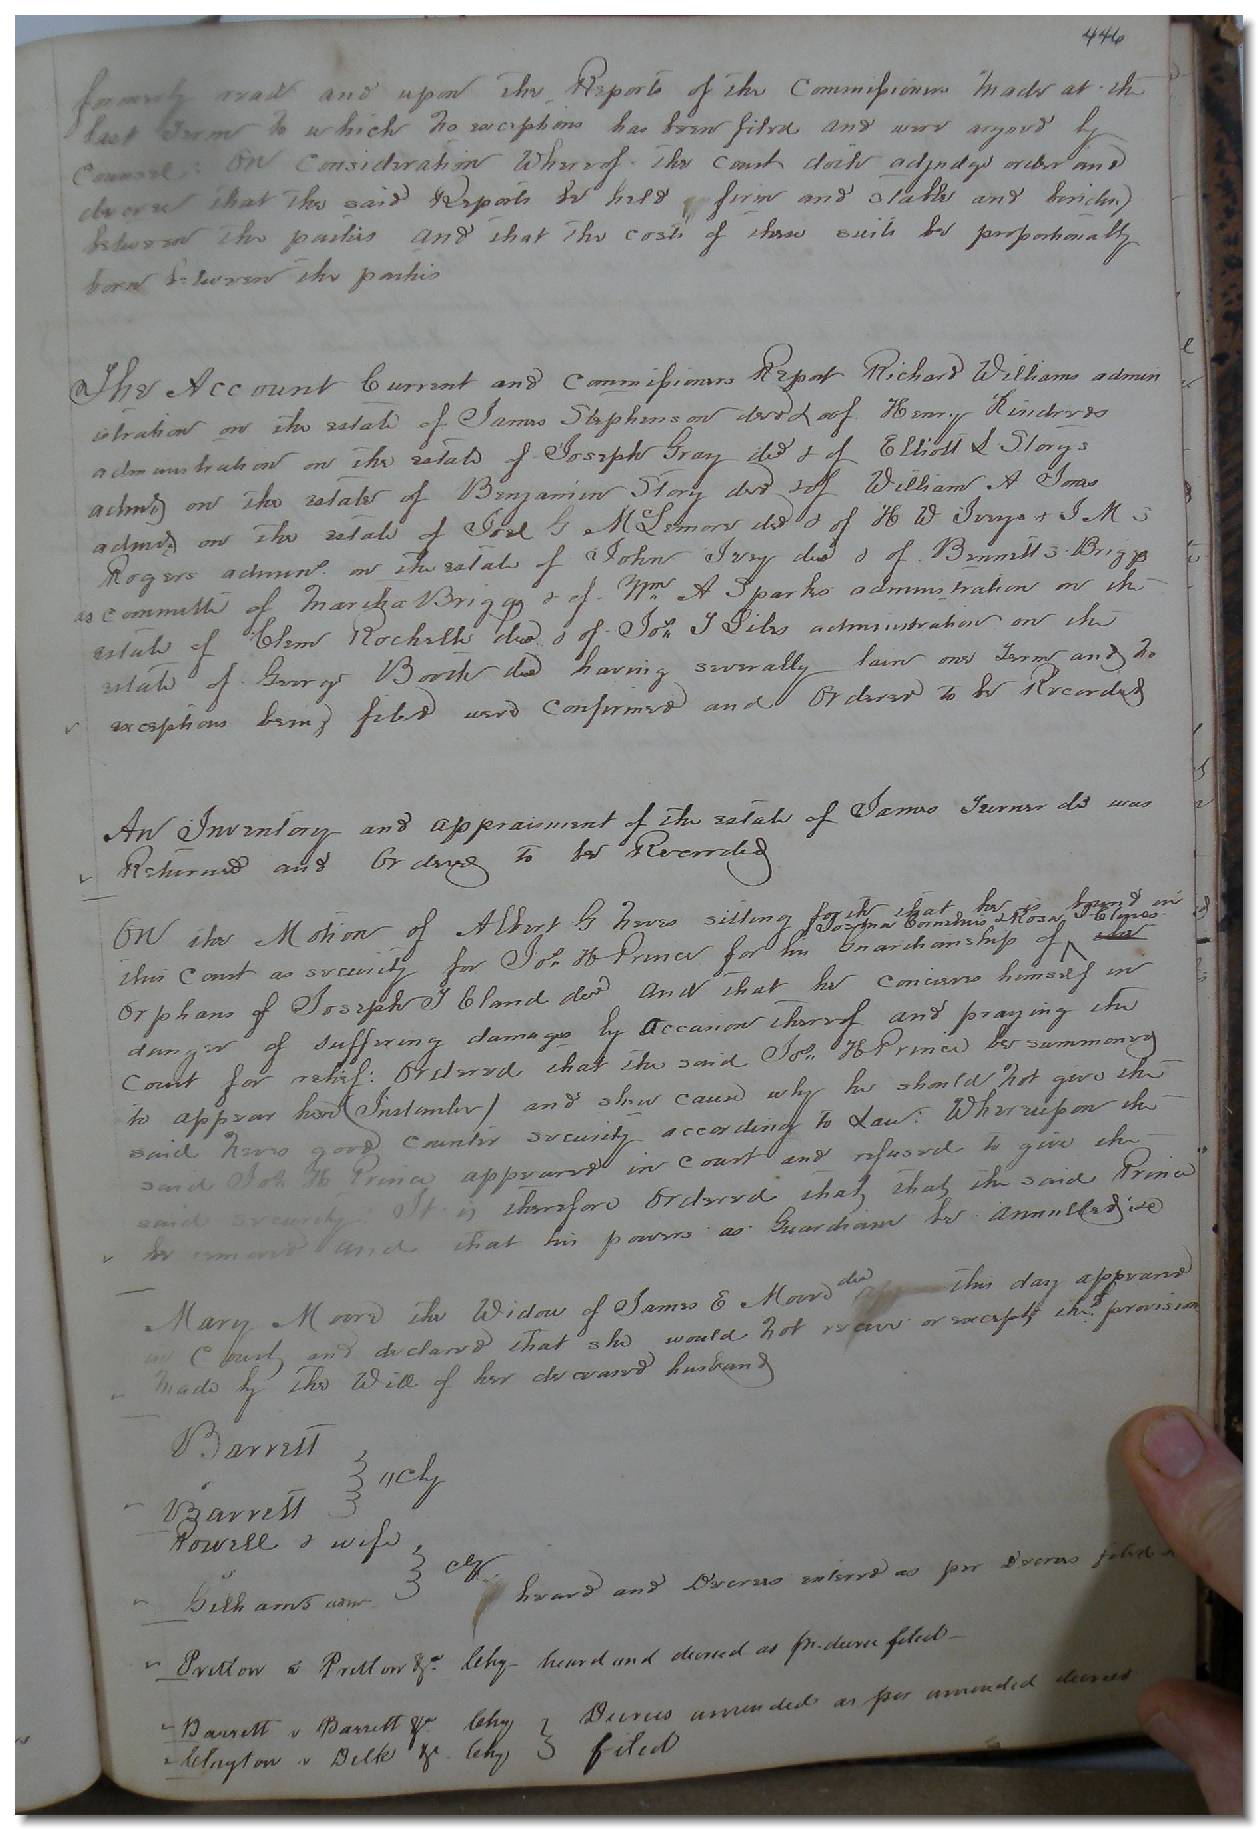 446
formerly read and upon the Reports of the Commissioners made at the
last Term to which no exceptions has been filed and were argued by
Counsel: On Consideration Whereof the Court doth adjudge order and
decree that the said Reports be held firm and stable and binding
between the parties and that the costs of these suits be proportionally
born between the parties
The Account Current and Commissioners Report Richard Williams admin
istration on the estate of James Stephenson decd & of Henry Kindreds
administration on the estate of Joseph Gray decd & of Elliott L Storys
admn on the estate of Benjamin Story decd & of William A Jones
admn on the estate of Joel G McLemore decd & of H W Iveys & J M S
Rogers admn on the estate of John Ivey decd & of Bennett S. Briggs
as committe of Martha Briggs & of Wm A Sparks administration on the
estate of Clem Rochelle decd & of Jos T Liles administration on the
estate of George Booth decd having severally lain one Term and no
exceptions being filed were confirmed and Ordered to be Recorded
An Inventory and appraisment of the estate of James Turner dd was
Returned and Ordered to be Recorded
On the Motion of Albert G Heres sitting forth that he is bound in
Cornelius & Rosa T Eland
this Court as security for Jos H Prince for his Guardianship of
Orphans of Joseph T Eland decd and that he concieves himself in
danger of suffering damage by Occasion thereof and praying the
Court for relief: Ordered that the said Jos H Prince be summoned
to appear here (Instanter) and shew cause why he should not give the
said Heres good counter security according to Law: Whereupon the
said Jos H Prince appeared in Court and refused to give the
said security It is therefore Ordered that that the said Prince
be removed and that his powers as Guardian be annulled
Mary Moore the Widow of James E Moore decd this day appeared
in Court and declared that she would not receive or except the provision
made by the Will of her deceased husband
Barrett
v
Barrett } Chy
Rowell & wife
v
Gilliams } Chy heard and Decrees entered as per Decrees filed
Pretlow v Pretlow &c Chy heard and decreed as pr decree filed
Barrett v Barrett &c Chy } Decrees amended as per amended decrees
Clayton v Belk &c Chy } filed